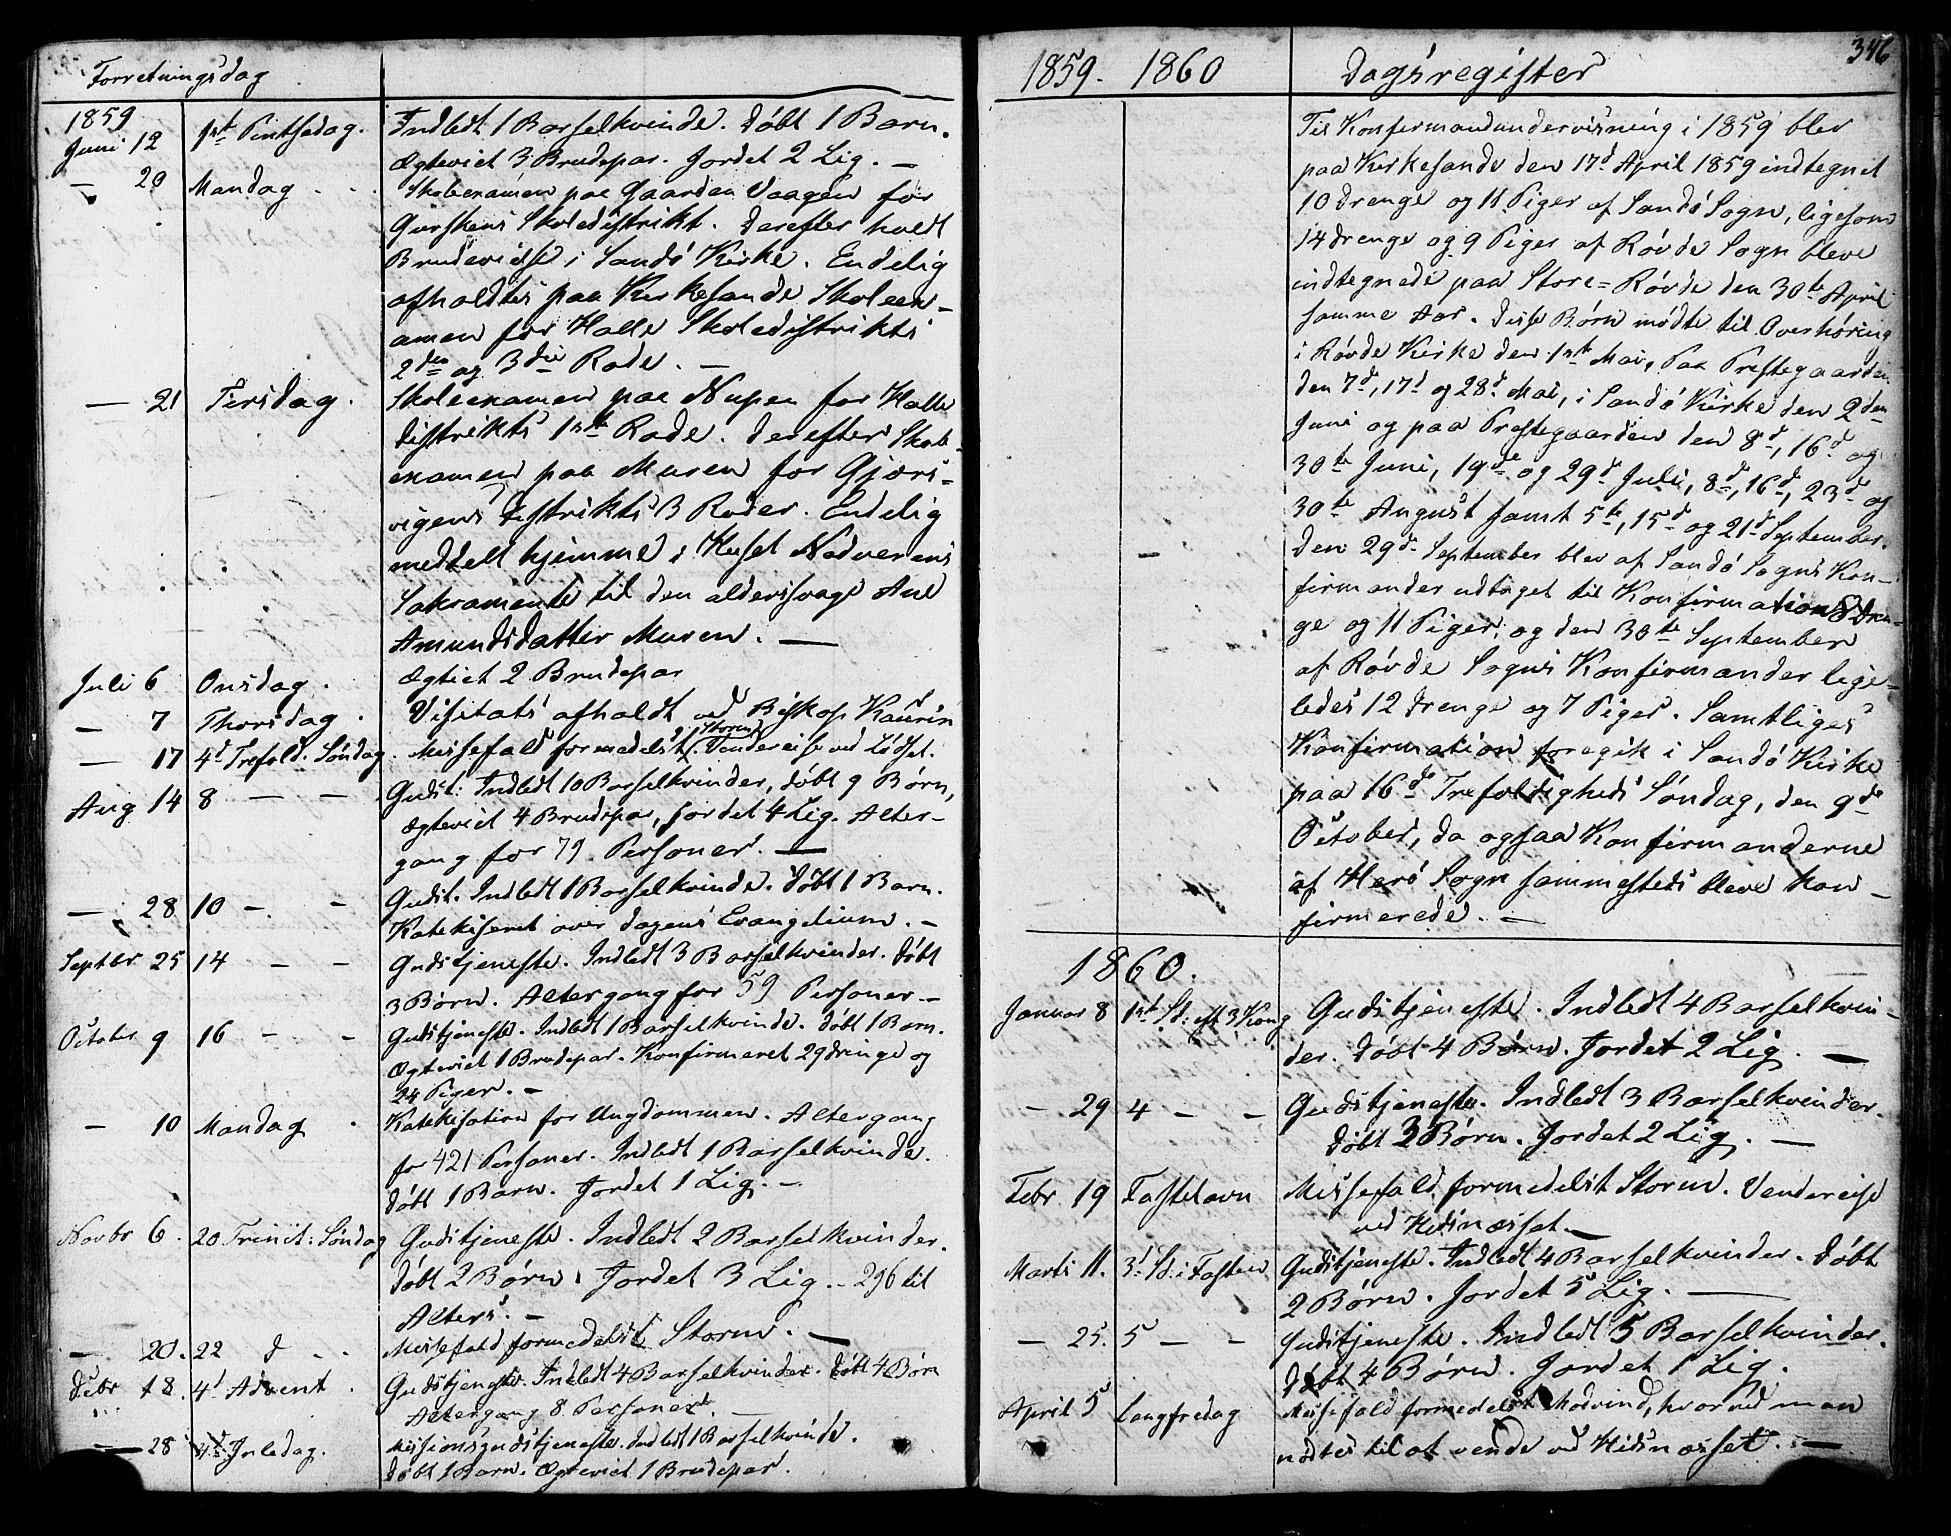 Forretningsdag
1859
Juni 12 1ste Pintsedag. Indledt 1 Barselkvinde. Døbt 1 Barn.
Ægteviet 3 Brudepar. Jordet 2 Lig. —
— 20 Mandag . . Skoleexamen paa Gaarden Vaagen for
Gurskens Skoledistrikt. Derefter holdt
Brudevielse i Sandø Kirke. Endelig
afholdtes paa Kirkesande Skoleex-
amen for Halle Skoledistrikts
2den og 3die Rode. —
— 21 Tirsdag. Skoleexamen paa Nupen for Halle
Distrikts 1ste Rode. Derefter Skole-
examen paa Muren for Gjærs-
vigens Distrikts 3 Roder. Endelig
meddelt hjemme i Huset Nadverens
Sakramente til den aldersvage Ane
Amundsdatter Muren. —
Juli 6 Onsdag. Ægtviet 2 Brudepar
— 7 Thorsdag. Visitats afholdt ved Biskop Kaurin
— 17 4d Trefold. Søndag. Messefald formedelst Storm. Vendereise ved
Aug 14 8 — — Gudst: Indledt 10 Barselkvinder, døbt 9 Børn,
Ægteviet 4 Brudepar, jordet 4 Lig. Alter-
gang for 79 Personer. —
— 28 10 — — Gudst. Indledt 1 Barselkvinde. Døbt 1 Barn.
Katekiseret over Dagens Evangelium. —
Septbr 25 14 — — Gudstjeneste. Indledt 3 Barselkvinder. Døbt
3 Børn. Altergang for 59 Personer. —
October 9 16 — — Gudstjeneste. Indledt 1 Barselkvinde. Døbt 1 Barn.
Ægteviet 1 Brudepar. Konfirmeret 29 Drenge og
24 Piger. —
— 10 Mandag . Katekisation for Ungdommen. Altergang
for 421 Personer. Indledt 1 Barselkvinde.
Døbt 1 Barn. Jordet 1 Lig. —
Novbr 6. 20 Trinit: Søndag Gudstjeneste. Indledt 2 Barselkvinder.
Døbt 2 Børn. Jordet 3 Lig. — 296 til
Alters. —
— 20. 22 d . . Messefald formedelst Storm. —
Debr 18. 4d Advent . Gudstjeneste. Indledt 4 Barselkvinder. Døbt 4 Børn
Altergang 8 Personer. —
— 28 4d Juledag. Missionsgudstjeneste. Indledt 1 Barselkvinde.
Døbt 1 Barn. Ægteviet 1 Brudepar.
1859. 1860 Dagsregister 346
Til Konfirmandundervisning i 1859 blev
paa Kirkesande den 17d April 1859 indtegnet
10 Drenge og 11 Piger af Sandø Sogn, ligesom
14 Drenge og 9 Piger af Røvde Sogn bleve
indtegnede paa Store=Røvde den 30te April
samme Aar. Disse Børn mødte til Overhøring
i Røvde Kirke den 1ste Mai, Paa Prestegaarden
den 7d, 17d og 28d Mai, i Sandø Kirke den 2den
Juni og paa Prestegaarden den 8d, 16d og
30te Juni, 19de og 29d Juli, 8d, 16d, 23d og
30te August samt 5te, 15d og 21d September.
Den 29d September blev af Sandø Sogns Kon-
firmander udtaget til Konfirmation 8 Dren-
ge og 11 Piger, og den 30te September
af Røvde Sogns Konfirmander lige-
ledes 12 Drenge og 7 Piger. Samtliges
Konfirmation foregik i Sandø Kirke
paa 16d Trefoldigheds Søndag, den 9de
October, da ogsaa Konfirmanderne
af Herø Sogn sammesteds bleve kon-
firmerede. —
1860.
Januar 8 1ste Sd: eft 3 Kong Gudstjeneste. Indledt 4 Barselkvin-
der. Døbt 4 Børn. Jordet 2 Lig. —
— 29 4 — — Gudstjeneste. Indledt 3 Barselkvinder.
Døbt 3 Børn. Jordet 2 Lig. —
Febr. 19 Fastelavn Messefald formedelst Storm. Vendereise
ved Hidsnæsset. —
Marts 11. 3d Sd: i Fasten Gudstjeneste. Indledt 4 Barselkvinder. Døbt
2 Børn. Jordet 5 Lig. —
— 25. 5 — — Gudstjeneste. Indledt 5 Barselkvinder.
Døbt 4 Børn. Jordet 1 Lig.
April 5 Langfredag Messefald formedelst Modvind, hvorved man
nødtes til at vende ved Hidsnæsset. —